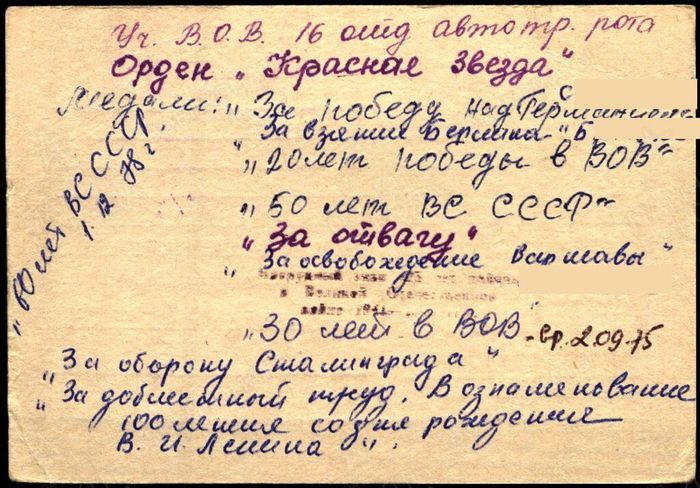 Уч. В.О.В. 16 отд автотр. рота
Орден „Красная Звезда"
Медали: „За победу над Германией
„За взятии Берлина"
„20 лет победы в ВОВ"
„50 лет ВС СССР"
„За отвагу"
„За освобождение Варшавы"
в Великой Отечественной
„30 лет в ВОВ" - вр. 2.09.75
„За оборону Сталинграда"
„За доблестный труд. В ознаменование
100летия со дня рождения
В. И. Ленина".
„60 лет ВС СССР
1.12.78 г.